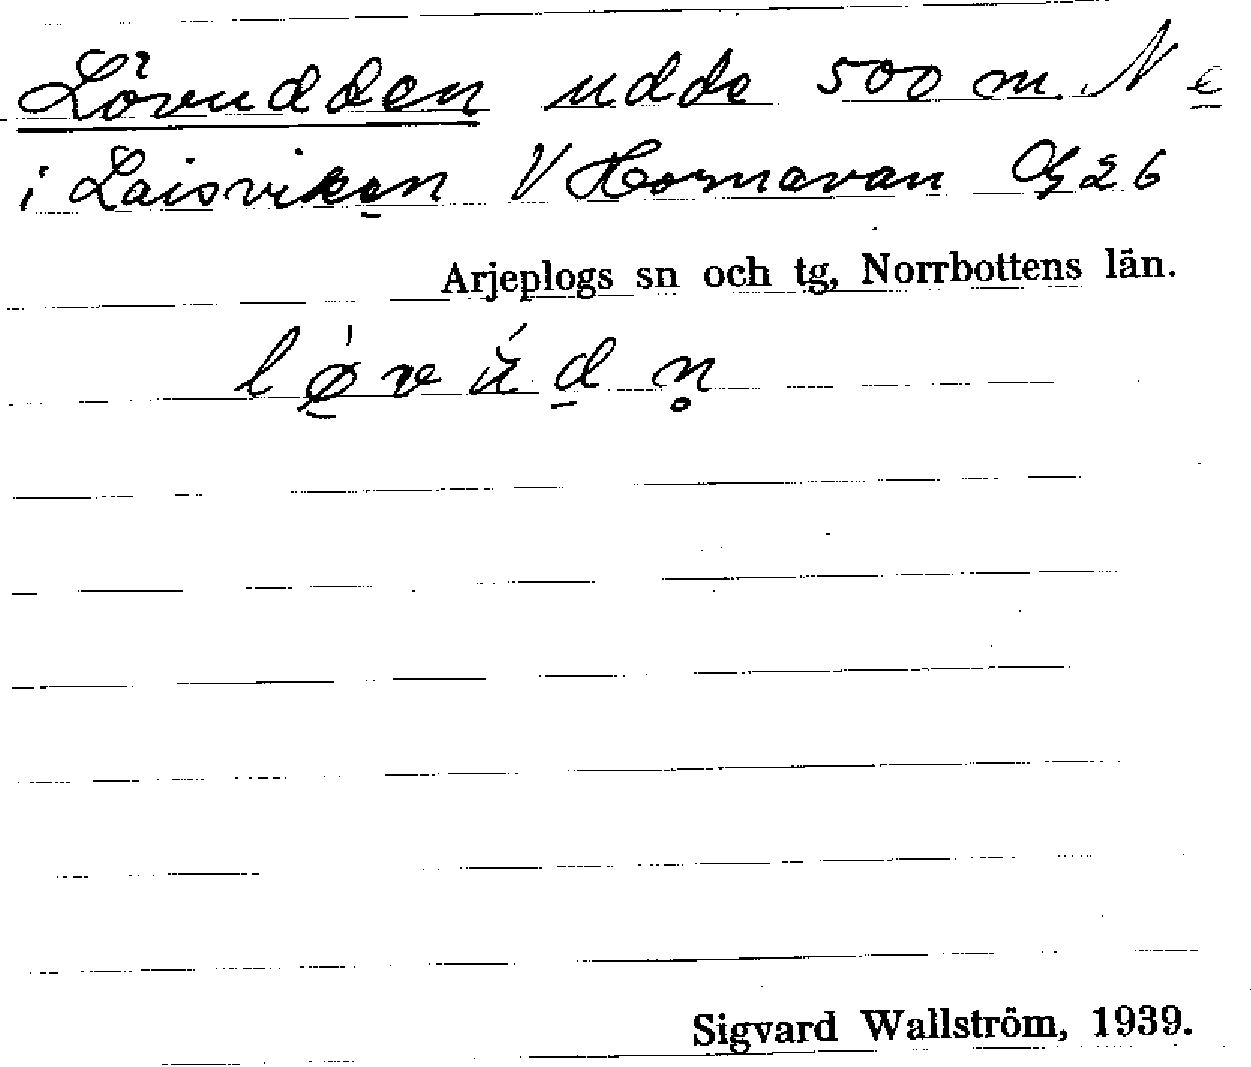 Lövudden udde 500 m N e
i Laisviken V Hornavan G 26
Arjeplogs sn och tg, Norrbottens län.
Sigvard Wallström, 1939.